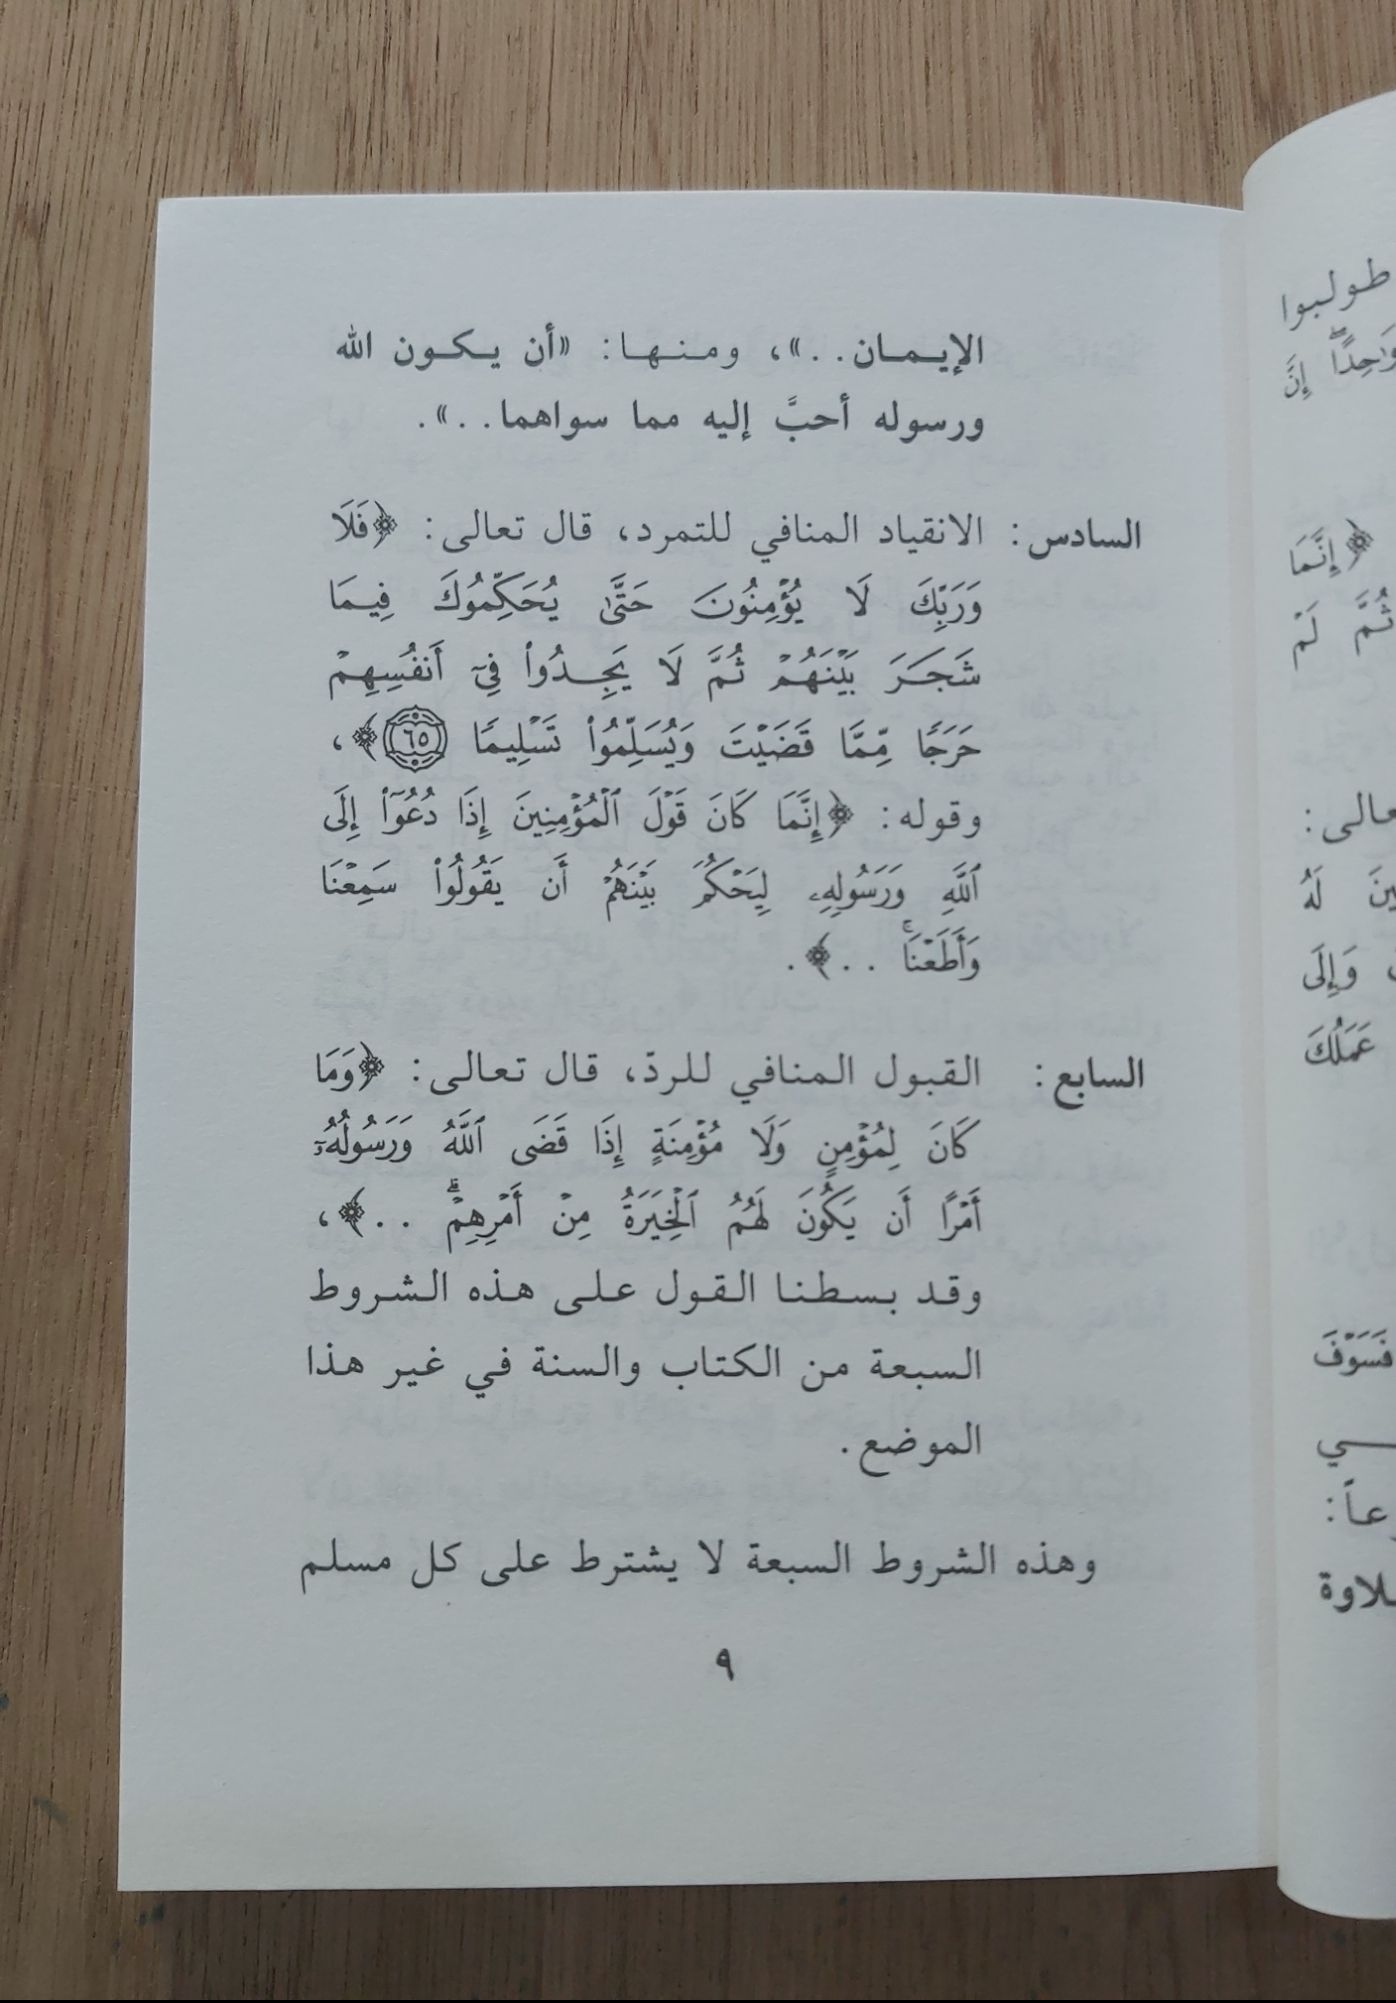 الإيمان..»، ومنها: «أن يكون الله
ورسوله أحبَّ إليه مما سواهما..».
السادس: الانقياد المنافي للتمرد، قال تعالى: ﴿فَلَا
وَرَبِّكَ لَا يُؤْمِنُونَ حَتَّىٰ يُحَكِّمُوكَ فِيمَا
شَجَرَ بَيْنَهُمْ ثُمَّ لَا يَجِدُوا۟ فِىٓ أَنفُسِهِمْ
حَرَجًا مِّمَّا قَضَيْتَ وَيُسَلِّمُوا۟ تَسْلِيمًا ٦٥﴾،
وقوله: ﴿إِنَّمَا كَانَ قَوْلَ ٱلْمُؤْمِنِينَ إِذَا دُعُوٓا۟ إِلَى
ٱللَّهِ وَرَسُولِهِۦ لِيَحْكُمَ بَيْنَهُمْ أَن يَقُولُوا۟ سَمِعْنَا
وَأَطَعْنَا ۚ ..﴾.
السابع: القبول المنافي للردّ، قال تعالى: ﴿وَمَا
كَانَ لِمُؤْمِنٍ وَلَا مُؤْمِنَةٍ إِذَا قَضَى ٱللَّهُ وَرَسُولُهُۥٓ
أَمْرًا أَن يَكُونَ لَهُمُ ٱلْخِيَرَةُ مِنْ أَمْرِهِمْ ۗ ..﴾،
وقد بسطنا القول على هذه الشروط
السبعة من الكتاب والسنة في غير هذا
الموضع.
وهذه الشروط السبعة لا يشترط على كل مسلم
٩
طولبوا
وَٰحِدًا ۖ إِنَّ
﴿إِنَّمَا
ثُمَّ لَمْ
وَإِلَى
عَمَلُكَ
فَسَوْفَ